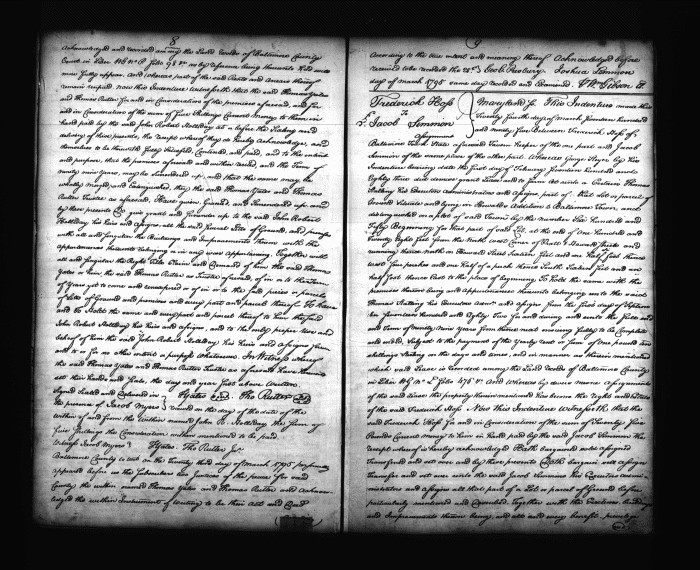 8
Acknowledged and recorded among the Land Records of Baltimore County
Court in Liber WG No Folio 98 &c as by reference being thereunto had will
more fully appear. And whereas part of the said Rents and arrears thereof
remain unpaid Now this Indenture Witnesseth that the said Thomas Yates
and Thomas Rutter for and in Consideration of the premises aforesaid, and for
and in Consideration of the sum of five Shillings Current Money to them in
hand paid by the said John Robert Holliday at or before the Sealing and
delivery of these presents, the receipt whereof they do hereby Acknowledge, and
themselves to be therewith fully Satisfied, Contented, and paid, and to the intent
and purpose, that the premises aforesaid and within and the Term
ninety nine years, may be Surrendered up, and that the same may be
wholly merged, and Extinguished, they the said Thomas Yates and Thomas
Rutter Trustee as aforesaid, Have given, Granted and Surrendered up and
by these presents Do give grant and Surrender up to the said John Robert
Holliday his Heirs and Assigns all the said Lots of Ground, and premises
with all and Singular the Buildings and Improvements thereon with the
appurtenances thereunto belonging or in any wise appertaining Together with
all and Singular the Right Title Claim and Demand of him the said Thomas
Yates or him, the said Thomas Rutter as Trustee aforesaid, of in or to the Term
of Years yet to come and unexpired or of in or to the said piece or parcels
of Lots of Ground and premises and every part and parcel thereof To Have
and To Hold the same and every part and parcel thereof to him the said
John Robert Holliday his Heirs and Assigns, and to the only proper use and
behoof of him the said John Robert Holliday his Heirs and Assigns forever
and to or for no other intent or purpose whatsoever In Witness whereof
the said Thomas Yates and Thomas Rutter Trustee as aforesaid have hereunto
set their hands and Seals, the day and year first above Written.
Signed Sealed and Delivered in TYates Seal Tho Rutter Seal
the presence of Jacob Myers received on the day of the date of the
within of and from the within named John R. Holliday the sum of
five Shillings the Consideration within mentioned to be paid
Witness Jacob Myers TYates. Tho Rutter
Baltimore County to wit on the Twenty third day of March 1795 personally
appeared before us the Subscribers two Justices of the peace for said
County the within named Thomas Yates and Thomas Rutter and Acknow
ledged the within Instrument of writing to be their Act and Deed
9
According to the true intent and meaning thereof Acknowledged before
received to be recorded the 24th Joshua Lemmon
day of March 1795 same day recorded and Examined Wm Gibson Clk
Frederick Hoss
To
Jacob Simmon
Assignment
Maryland Ss. This Indenture made this
Twenty fourth day of March Seventeen hundred
and ninety five Between Frederick Hoss of
Baltimore Town State aforesaid Tavern keeper of the one part and Jacob
Simmon of the same place of the other part. Whereas George by his
Indenture bearing date the first day of February Seventeen hundred and
Eighty three did demise grant Lease and to farm let unto a certain Thomas
his Executors administrators and assigns part of that lot or parcel of
Ground Situate and lying in Howards Addition to Baltimore Town, and
distinguished on a plot of said Town by the number Six hundred and
fifty Beginning for that part of said Lot, at the end of One hundred and
Twenty Eight feet from the North east corner of and Howard Streets and
running thence North on Howard Street Sixteen feet and one Half foot thence
West inches and one Half of a perch thence South Sixteen feet and one
half foot thence East to the place of beginning To Hold the same with the
premises thereon being and appurtenances thereunto belonging unto the said
Thomas his Executors Admrs and assigns from the first day of
Seventeen hundred and Eighty Two for and during and unto the full end
and Term of Ninety Nine Years from thence next ensuing fully to be Complete
and ended, Subject to the payment of the Yearly rent or sum of One pound
shillings Sterling on the days and times, and in manner as therein mentioned
which said Lease is recorded among the Land Records of Baltimore County
in Liber WG No L folio 476 &c And Whereas by divers mesne Assignments
of the said Lease the property therein mentioned has become the right and Estate
of the said Frederick Hoss Now this Indenture Witnesseth that the
said Frederick Hoss for and in Consideration of the sum of Twenty five
Pounds Current Money to him in hand paid by the said Jacob Simmon the
receipt whereof is hereby acknowledged Hath bargained sold assigned
Transferred and set over and by these presents Doth bargain sell assign
Transfer and set over unto the said Jacob Simmon his Executors admin-
istrators and assigns all that part of a Lot or parcel of Ground before
particularly mentioned and Described, Together with the Premises buildings
and Improvements thereon being, and all and every benefit, privilege